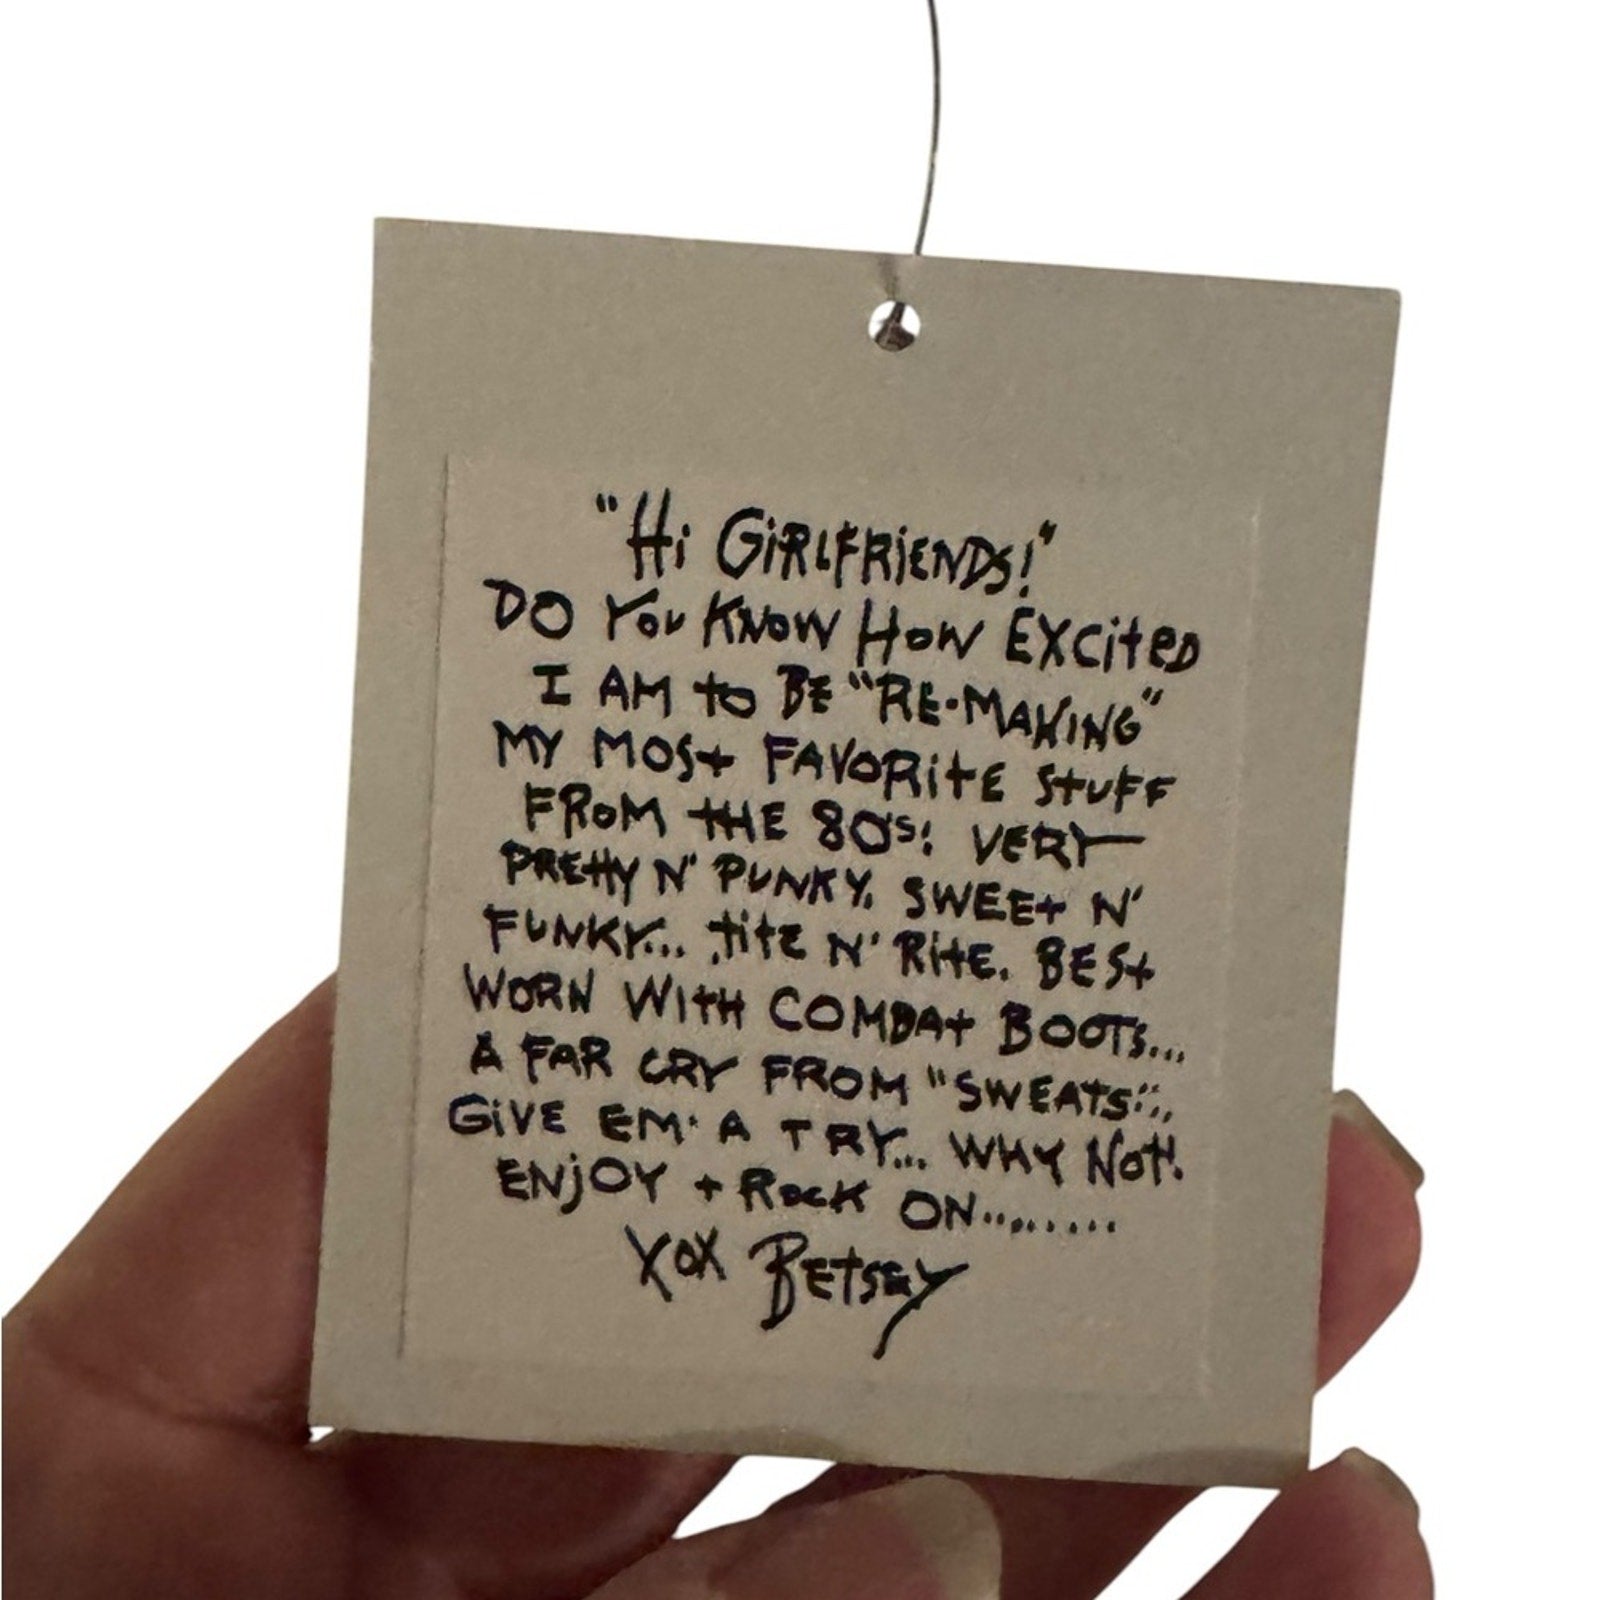 "Hi GiRLFRiENDS!"
DO YOU KNOW HOW EXCitED
I AM to BE "RE-MAKING"
MY MOSt FAVORitE StUFF
FROM tHE 80's! VERY
PREttY N' PUNKY. SWEEt N'
FUNKY... titE N' RitE. BESt
WORN WitH COMBAt BOOTS...
A FAR CRY FROM "SWEAtS"...
GiVE EM' A TRY... WHY Not!
ENjOY + ROCK ON.........
XOX BEtSEY